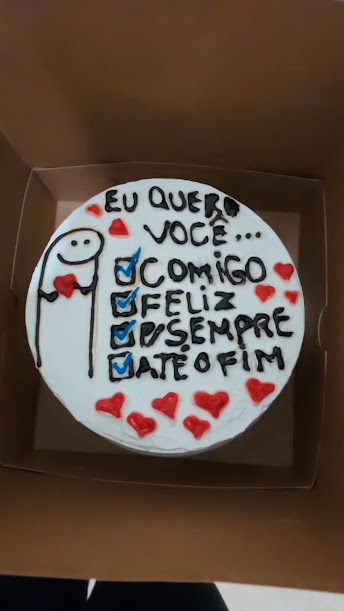 EU QUERO
VOCÊ...
COMIGO
FELIZ
P/SEMPRE
ATÉ O FIM